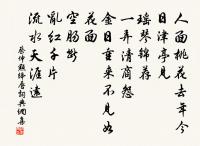 人面桃花去年今
日津亭見
瑤琴錦薦
一弄清商怨
今日重來不見如
花面
空腸斷
亂紅千片
流水天涯遠